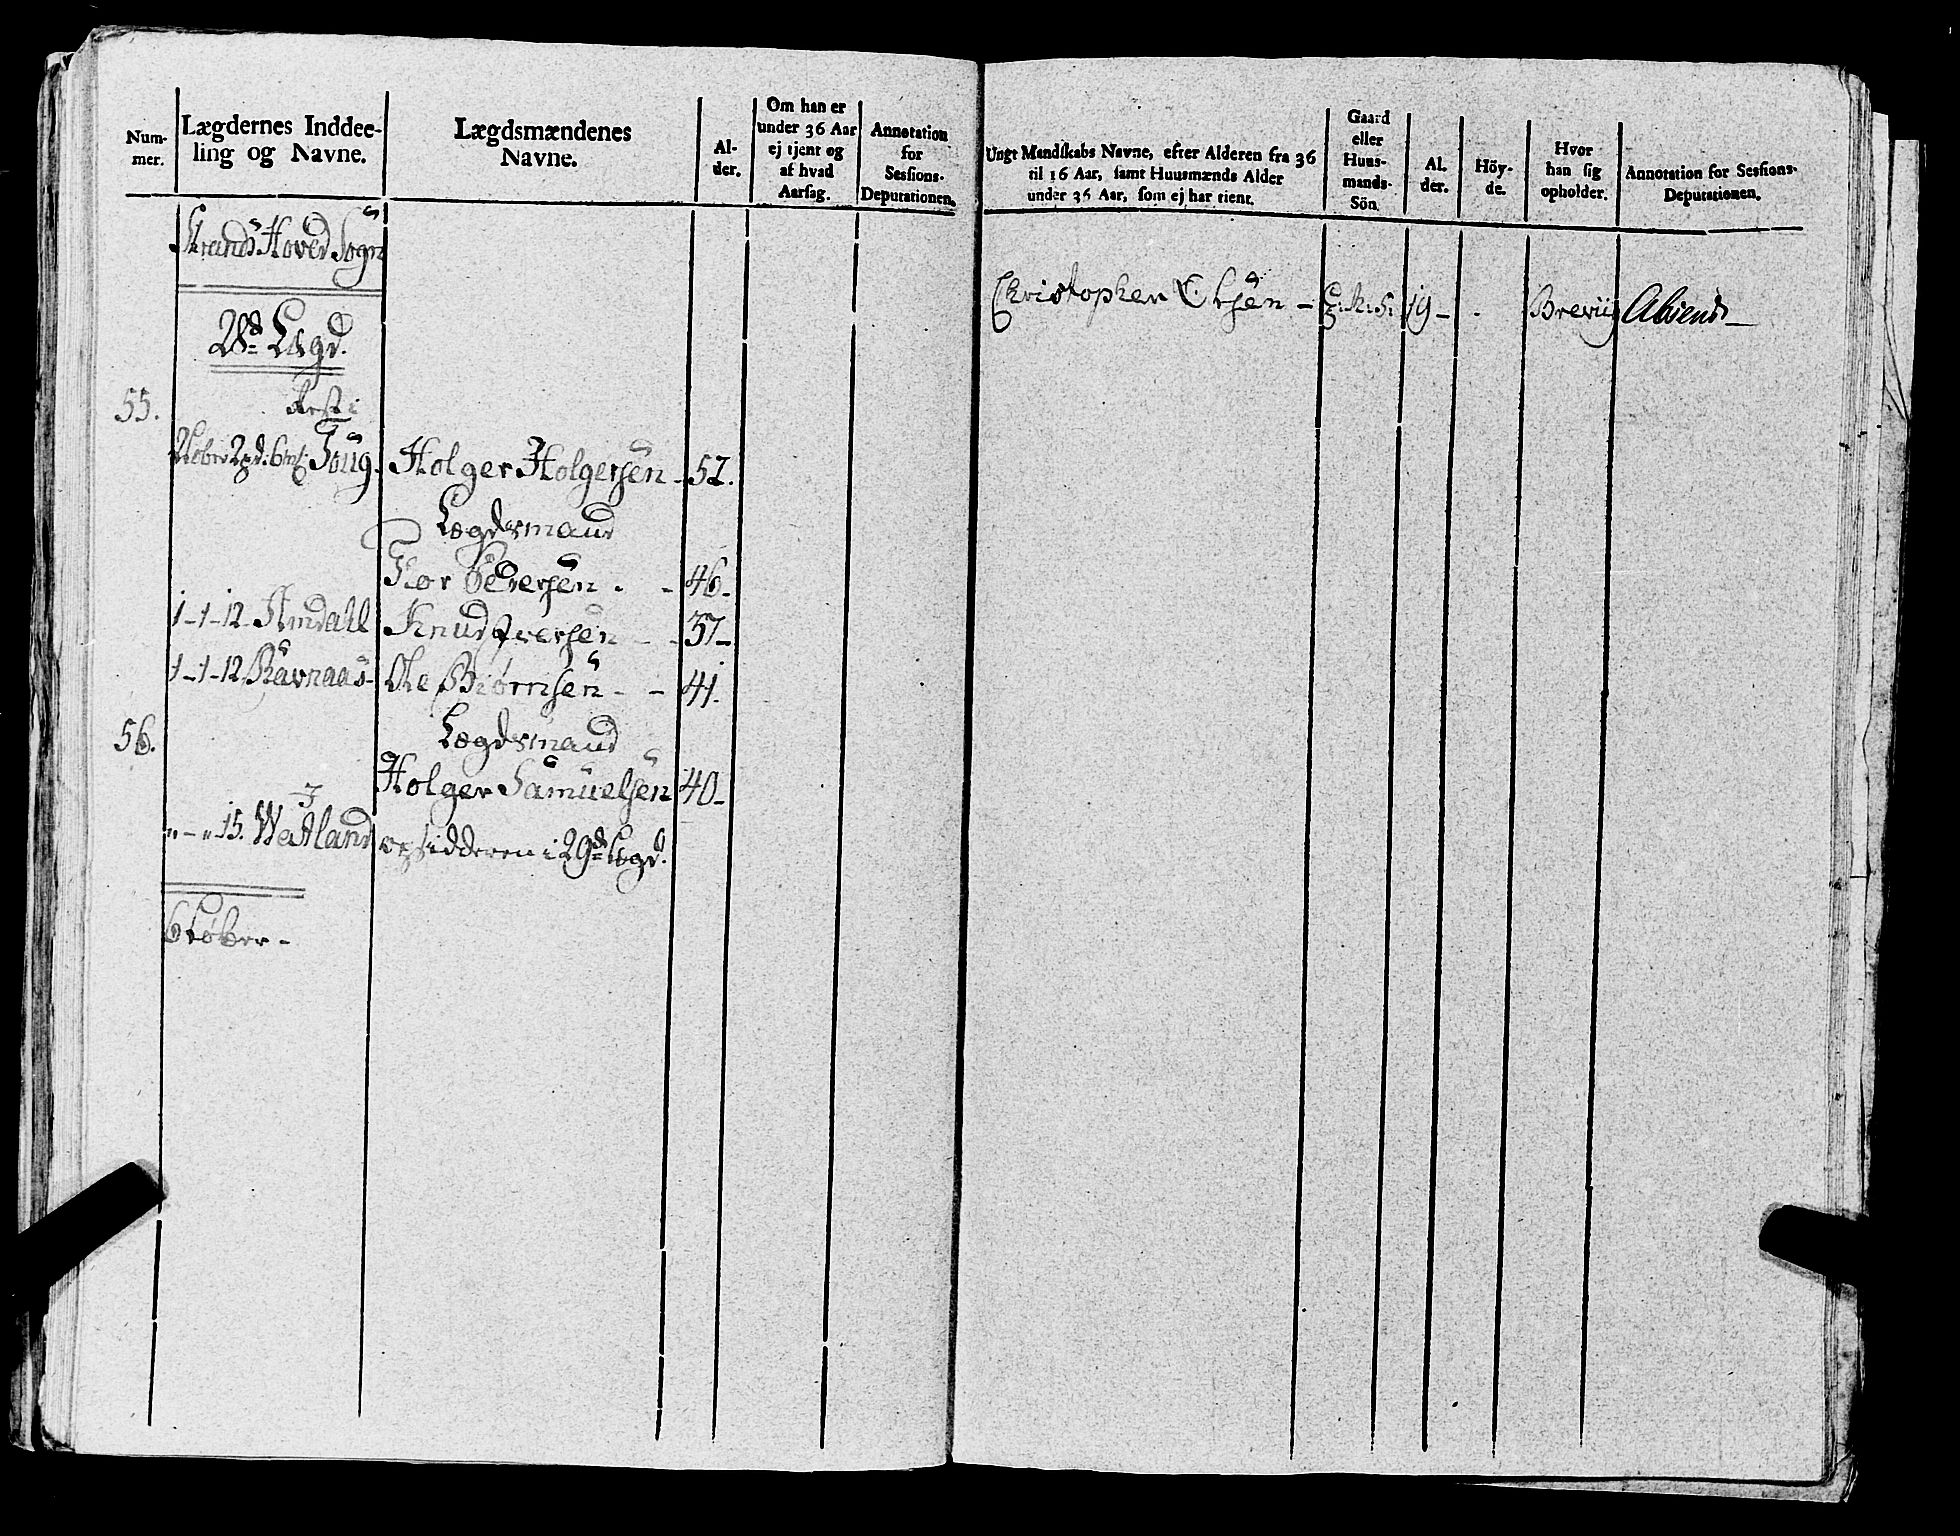 Num-
mer.
Lægdernes Inddee-
ling og Navne.
Lægdsmændenes
Navne.
Al-
der.
Om han er
under 36 Aar
ej tjent og
af hvad
Aarsag.
Annotation
for
Sessions-
Deputationen.
Strands Hoved Sogn
28de Lægd.
55.
Rest i
2 Løber 2 pd: 6 mk: Foug.
Holger Holgersen - 52.
Lægdsmand
Thor Pedersen. - 46.
1-1-12 Amdahl
Knud Iversen - - 37-
1-1-12. Ravnaas-
Ole Biørnsen - - 41.
56.
Lægdsmand
Holger Samuelsen 40-
I
" - " 15. Wetland
opsidderen i 29de Lægd.
6 Løber -
Ungt Mandskabs Navne, efter Alderen fra 36
til 16 Aar, samt Huusmænds Alder
under 36 Aar, som ej har tient.
Gaard
eller
Huus-
mands-
Sön.
Al-
der.
Höy-
de.
Hvor
han sig
opholder.
Annotation for Sessions-
Deputationen.
Christopher Elsen - 19 - Breviig Absend